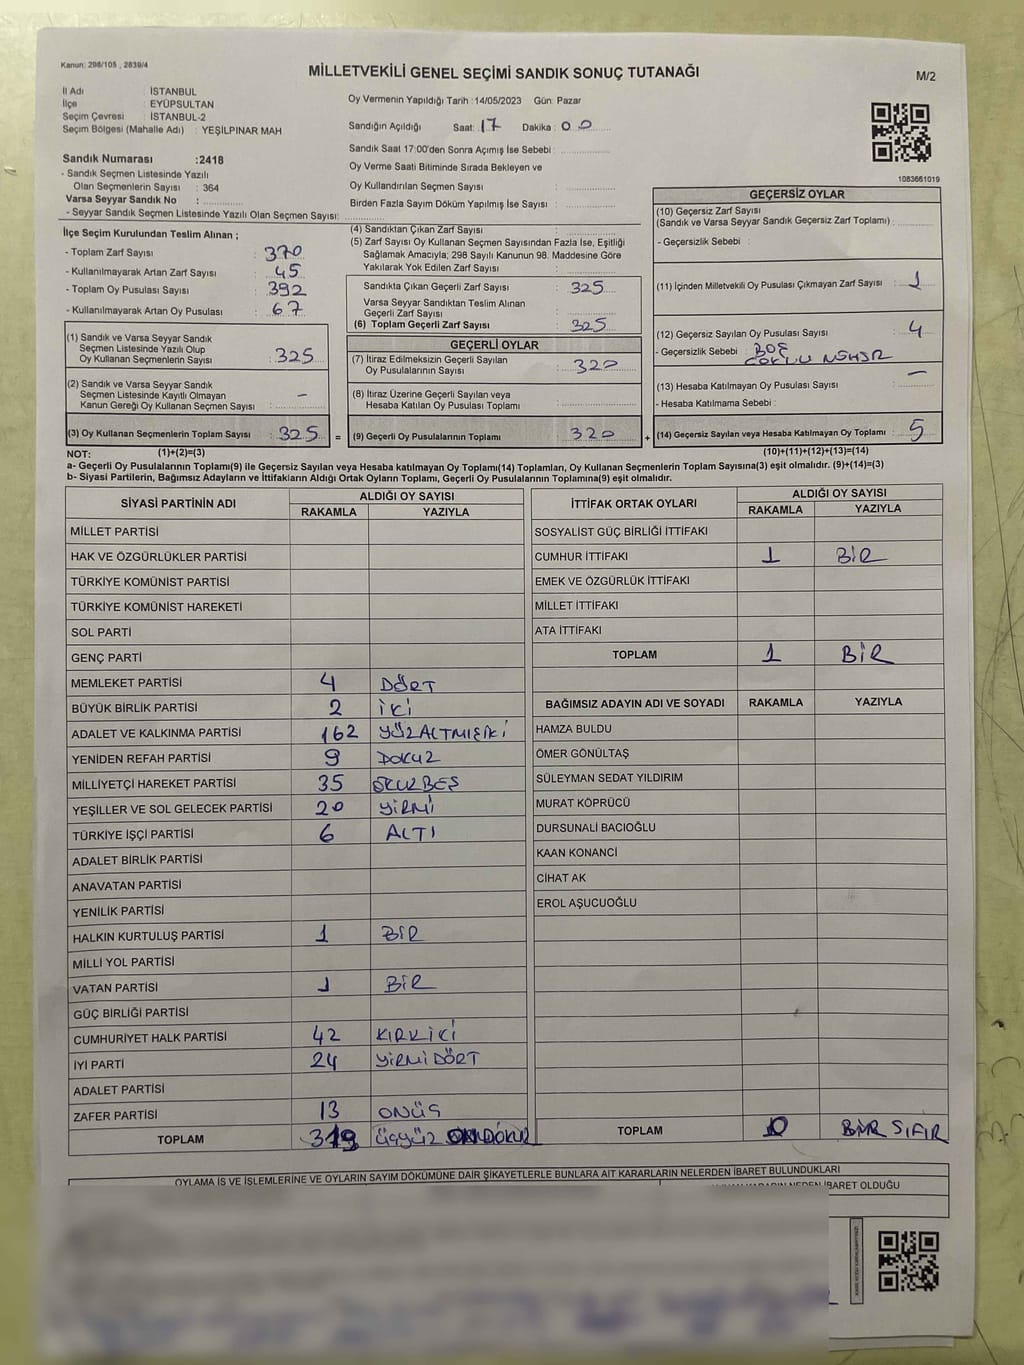 Kanun: 298/105 , 2839/4
MİLLETVEKİLİ GENEL SEÇİMİ SANDIK SONUÇ TUTANAĞI
M/2
İl Adı : İSTANBUL
İlçe : EYÜPSULTAN
Seçim Çevresi : İSTANBUL-2
Seçim Bölgesi (Mahalle Adı) : YEŞİLPINAR MAH
Sandık Numarası :2418
- Sandık Seçmen Listesinde Yazılı
Olan Seçmenlerin Sayısı : 364
Varsa Seyyar Sandık No :
- Seyyar Sandık Seçmen Listesinde Yazılı Olan Seçmen Sayısı:
İlçe Seçim Kurulundan Teslim Alınan ;
- Toplam Zarf Sayısı : 370
- Kullanılmayarak Artan Zarf Sayısı : 45
- Toplam Oy Pusulası Sayısı : 392
- Kullanılmayarak Artan Oy Pusulası : 67
(1) Sandık ve Varsa Seyyar Sandık
Seçmen Listesinde Yazılı Olup
Oy Kullanan Seçmenlerin Sayısı : 325
(2) Sandık ve Varsa Seyyar Sandık
Seçmen Listesinde Kayıtlı Olmayan
Kanun Gereği Oy Kullanan Seçmen Sayısı : -
(3) Oy Kullanan Seçmenlerin Toplam Sayısı : 325 =
Oy Vermenin Yapıldığı Tarih :14/05/2023 Gün: Pazar
Sandığın Açıldığı Saat: 17 Dakika : 00
Sandık Saat 17:00'den Sonra Açımış İse Sebebi :
Oy Verme Saati Bitiminde Sırada Bekleyen ve
Oy Kullandırılan Seçmen Sayısı :
Birden Fazla Sayım Döküm Yapılmış İse Sayısı :
(4) Sandıktan Çıkan Zarf Sayısı :
(5) Zarf Sayısı Oy Kullanan Seçmen Sayısından Fazla İse, Eşitliği
Sağlamak Amacıyla; 298 Sayılı Kanunun 98. Maddesine Göre
Yakılarak Yok Edilen Zarf Sayısı :
Sandıkta Çıkan Geçerli Zarf Sayısı : 325
Varsa Seyyar Sandıktan Teslim Alınan
Geçerli Zarf Sayısı :
(6) Toplam Geçerli Zarf Sayısı : 325
GEÇERLİ OYLAR
(7) İtiraz Edilmeksizin Geçerli Sayılan
Oy Pusulalarının Sayısı : 320
(8) İtiraz Üzerine Geçerli Sayılan veya
Hesaba Katılan Oy Pusulası Toplamı :
(9) Geçerli Oy Pusulalarının Toplamı : 320 +
1083661019
GEÇERSİZ OYLAR
(10) Geçersiz Zarf Sayısı
(Sandık ve Varsa Seyyar Sandık Geçersiz Zarf Toplamı) :
- Geçersizlik Sebebi :
(11) İçinden Milletvekili Oy Pusulası Çıkmayan Zarf Sayısı : 1
(12) Geçersiz Sayılan Oy Pusulası Sayısı : 4
- Geçersizlik Sebebi : BOŞ
ÇOKLU MÜHÜR
(13) Hesaba Katılmayan Oy Pusulası Sayısı : -
- Hesaba Katılmama Sebebi :
(14) Geçersiz Sayılan veya Hesaba Katılmayan Oy Toplamı : 5
NOT: (1)+(2)=(3) (10)+(11)+(12)+(13)=(14)
a- Geçerli Oy Pusulalarının Toplamı(9) ile Geçersiz Sayılan veya Hesaba katılmayan Oy Toplamı(14) Toplamları, Oy Kullanan Seçmenlerin Toplam Sayısına(3) eşit olmalıdır. (9)+(14)=(3)
b- Siyasi Partilerin, Bağımsız Adayların ve İttifakların Aldığı Ortak Oyların Toplamı, Geçerli Oy Pusulalarının Toplamına(9) eşit olmalıdır.
SİYASİ PARTİNİN ADI ALDIĞI OY SAYISI
RAKAMLA YAZIYLA
MİLLET PARTİSİ
HAK VE ÖZGÜRLÜKLER PARTİSİ
TÜRKİYE KOMÜNİST PARTİSİ
TÜRKİYE KOMÜNİST HAREKETİ
SOL PARTİ
GENÇ PARTİ
MEMLEKET PARTİSİ 4 DÖRT
BÜYÜK BİRLİK PARTİSİ 2 İKİ
ADALET VE KALKINMA PARTİSİ 162 YÜZALTMIŞİKİ
YENİDEN REFAH PARTİSİ 9 DOKUZ
MİLLİYETÇİ HAREKET PARTİSİ 35 OTUZBEŞ
YEŞİLLER VE SOL GELECEK PARTİSİ 20 YİRMİ
TÜRKİYE İŞÇİ PARTİSİ 6 ALTI
ADALET BİRLİK PARTİSİ
ANAVATAN PARTİSİ
YENİLİK PARTİSİ
HALKIN KURTULUŞ PARTİSİ 1 BİR
MİLLİ YOL PARTİSİ
VATAN PARTİSİ 1 BİR
GÜÇ BİRLİĞİ PARTİSİ
CUMHURİYET HALK PARTİSİ 42 KIRKİKİ
İYİ PARTİ 24 YİRMİDÖRT
ADALET PARTİSİ
ZAFER PARTİSİ 13 ONÜÇ
TOPLAM 319 ÜÇYÜZ ONDOKUZ
İTTİFAK ORTAK OYLARI ALDIĞI OY SAYISI
RAKAMLA YAZIYLA
SOSYALİST GÜÇ BİRLİĞİ İTTİFAKI
CUMHUR İTTİFAKI 1 BİR
EMEK VE ÖZGÜRLÜK İTTİFAKI
MİLLET İTTİFAKI
ATA İTTİFAKI
TOPLAM 1 BİR
BAĞIMSIZ ADAYIN ADI VE SOYADI RAKAMLA YAZIYLA
HAMZA BULDU
ÖMER GÖNÜLTAŞ
SÜLEYMAN SEDAT YILDIRIM
MURAT KÖPRÜCÜ
DURSUNALİ BACIOĞLU
KAAN KONANCİ
CİHAT AK
EROL AŞUCUOĞLU
TOPLAM 0 SIFIR
OYLAMA İŞ VE İŞLEMLERİNE VE OYLARIN SAYIM DÖKÜMÜNE DAİR ŞİKAYETLERLE BUNLARA AİT KARARLARIN NELERDEN İBARET BULUNDUKLARI
NEDEN İBARET OLDUĞU